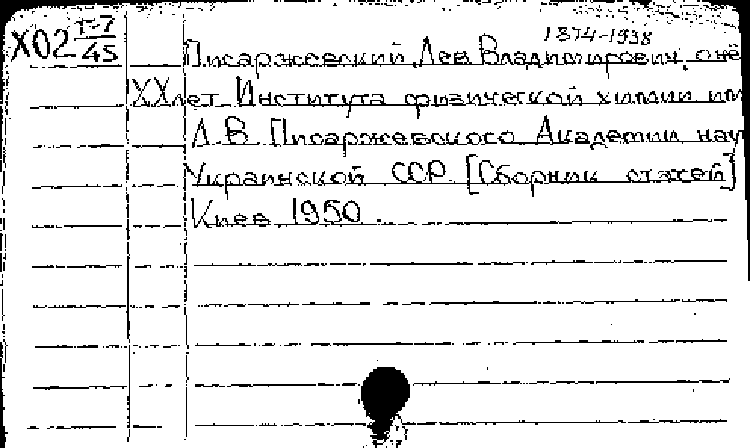 1874-1938
Х02 Г-7/45
Писаржевский, Лев Владимирович, о нём
XX лет Института физической химии им
Л.В. Писаржевского Академии нау
Украинской ССР. [Сборник статей]
Киев, 1950.